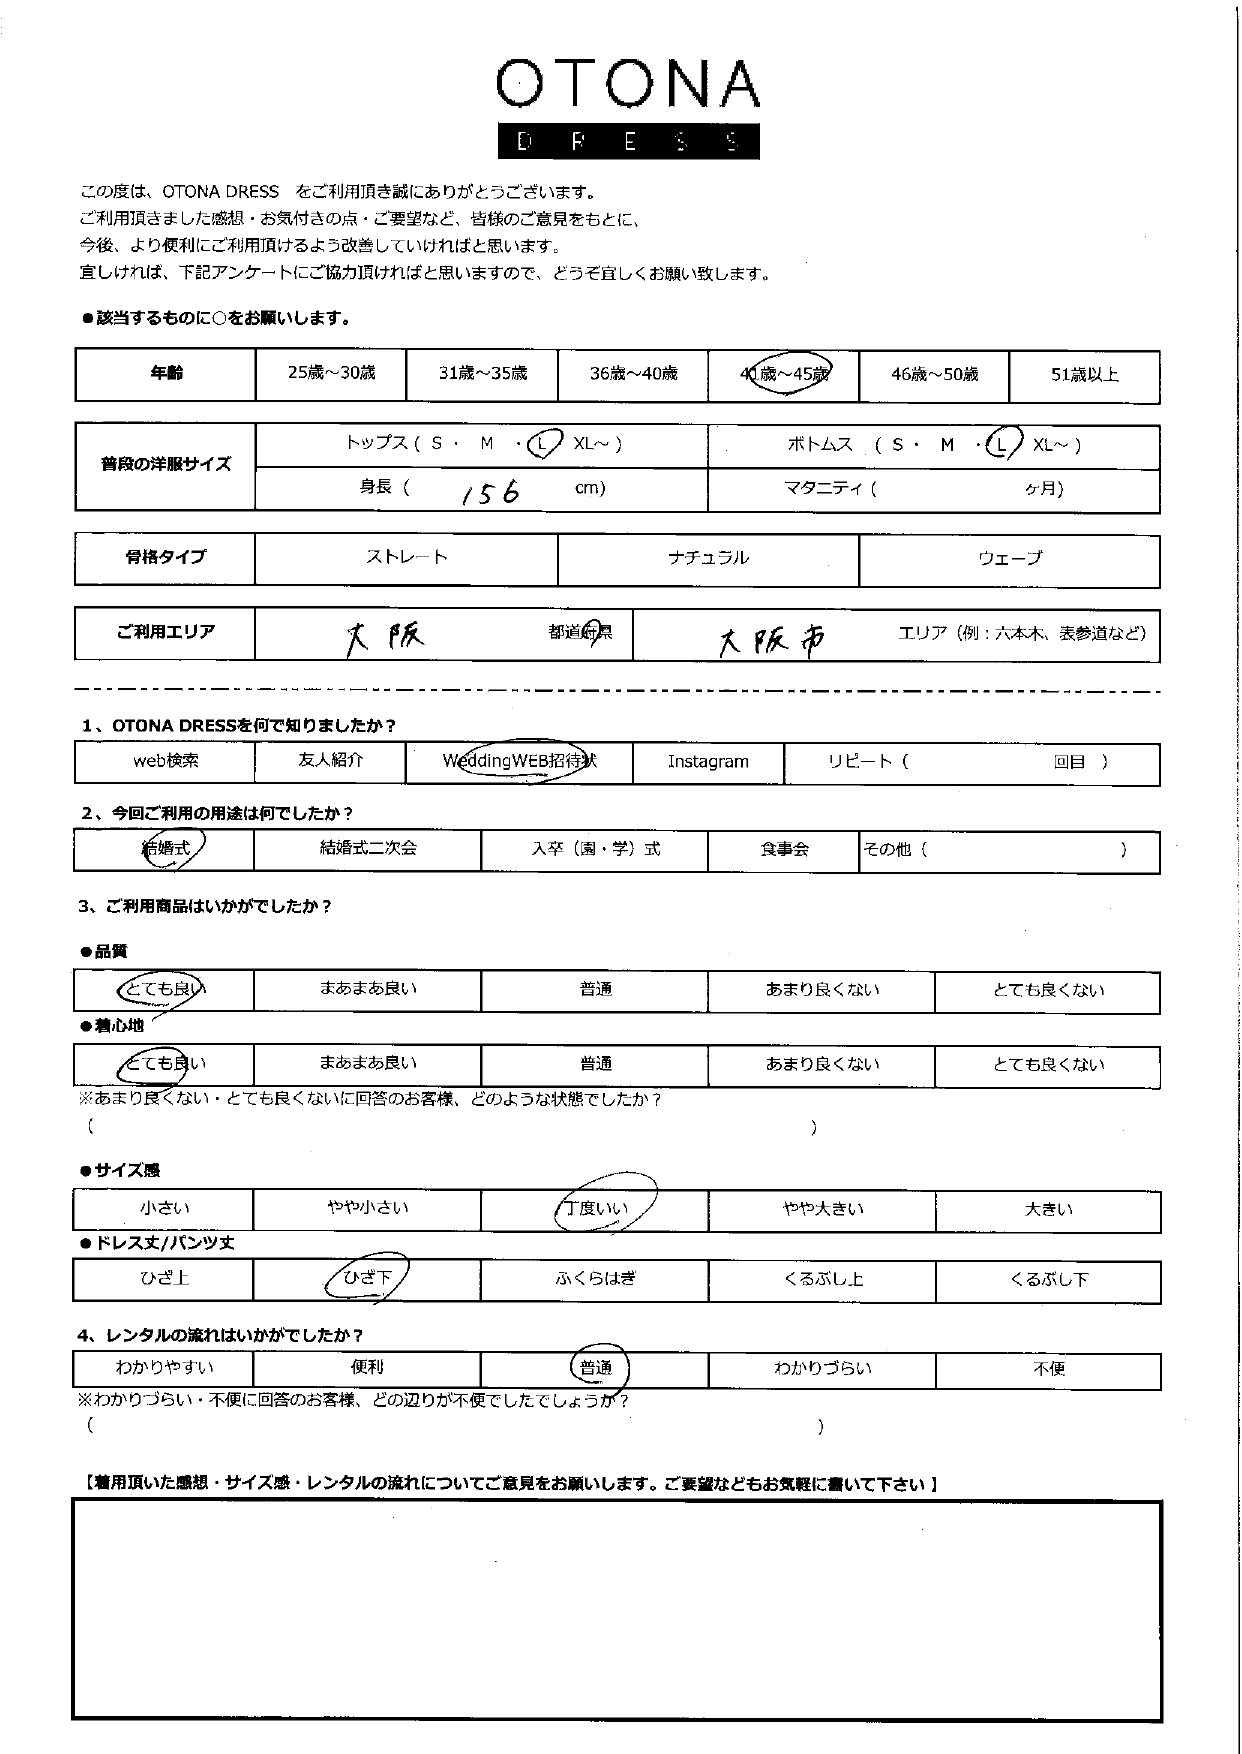 OTONA
DRESS
この度は、OTONA DRESS　をご利用頂き誠にありがとうございます。
ご利用頂きました感想・お気付きの点・ご要望など、皆様のご意見をもとに、
今後、より便利にご利用頂けるよう改善していければと思います。
宜しければ、下記アンケートにご協力頂ければと思いますので、どうぞ宜しくお願い致します。
●該当するものに○をお願いします。
年齢 25歳～30歳 31歳～35歳 36歳～40歳 41歳～45歳 46歳～50歳 51歳以上
普段の洋服サイズ
トップス ( S ・ M ・ L XL～ ) ボトムス ( S ・ M ・ L XL～ )
身長 ( 156 cm) マタニティ ( ヶ月)
骨格タイプ ストレート ナチュラル ウェーブ
ご利用エリア 大阪 都道府県 大阪市 エリア（例：六本木、表参道など）
1、OTONA DRESSを何で知りましたか？
web検索 友人紹介 WeddingWEB招待状 Instagram リピート ( 回目 )
2、今回ご利用の用途は何でしたか？
結婚式 結婚式二次会 入卒（園・学）式 食事会 その他 ( )
3、ご利用商品はいかがでしたか？
●品質
とても良い まあまあ良い 普通 あまり良くない とても良くない
●着心地
とても良い まあまあ良い 普通 あまり良くない とても良くない
※あまり良くない・とても良くないに回答のお客様、どのような状態でしたか？
( )
●サイズ感
小さい やや小さい 丁度いい やや大きい 大きい
●ドレス丈/パンツ丈
ひざ上 ひざ下 ふくらはぎ くるぶし上 くるぶし下
4、レンタルの流れはいかがでしたか？
わかりやすい 便利 普通 わかりづらい 不便
※わかりづらい・不便に回答のお客様、どの辺りが不便でしたでしょうか？
( )
【着用頂いた感想・サイズ感・レンタルの流れについてご意見をお願いします。ご要望などもお気軽に書いて下さい】